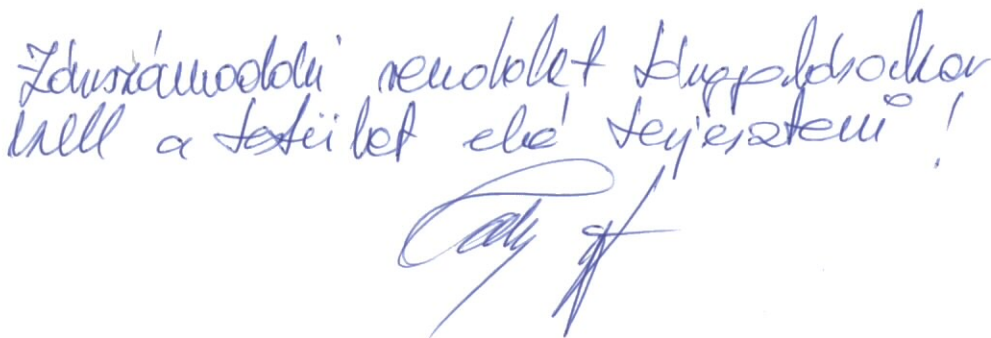 Zárszámadási rendelet tárgyalásakor
kell a testület elé terjeszteni!